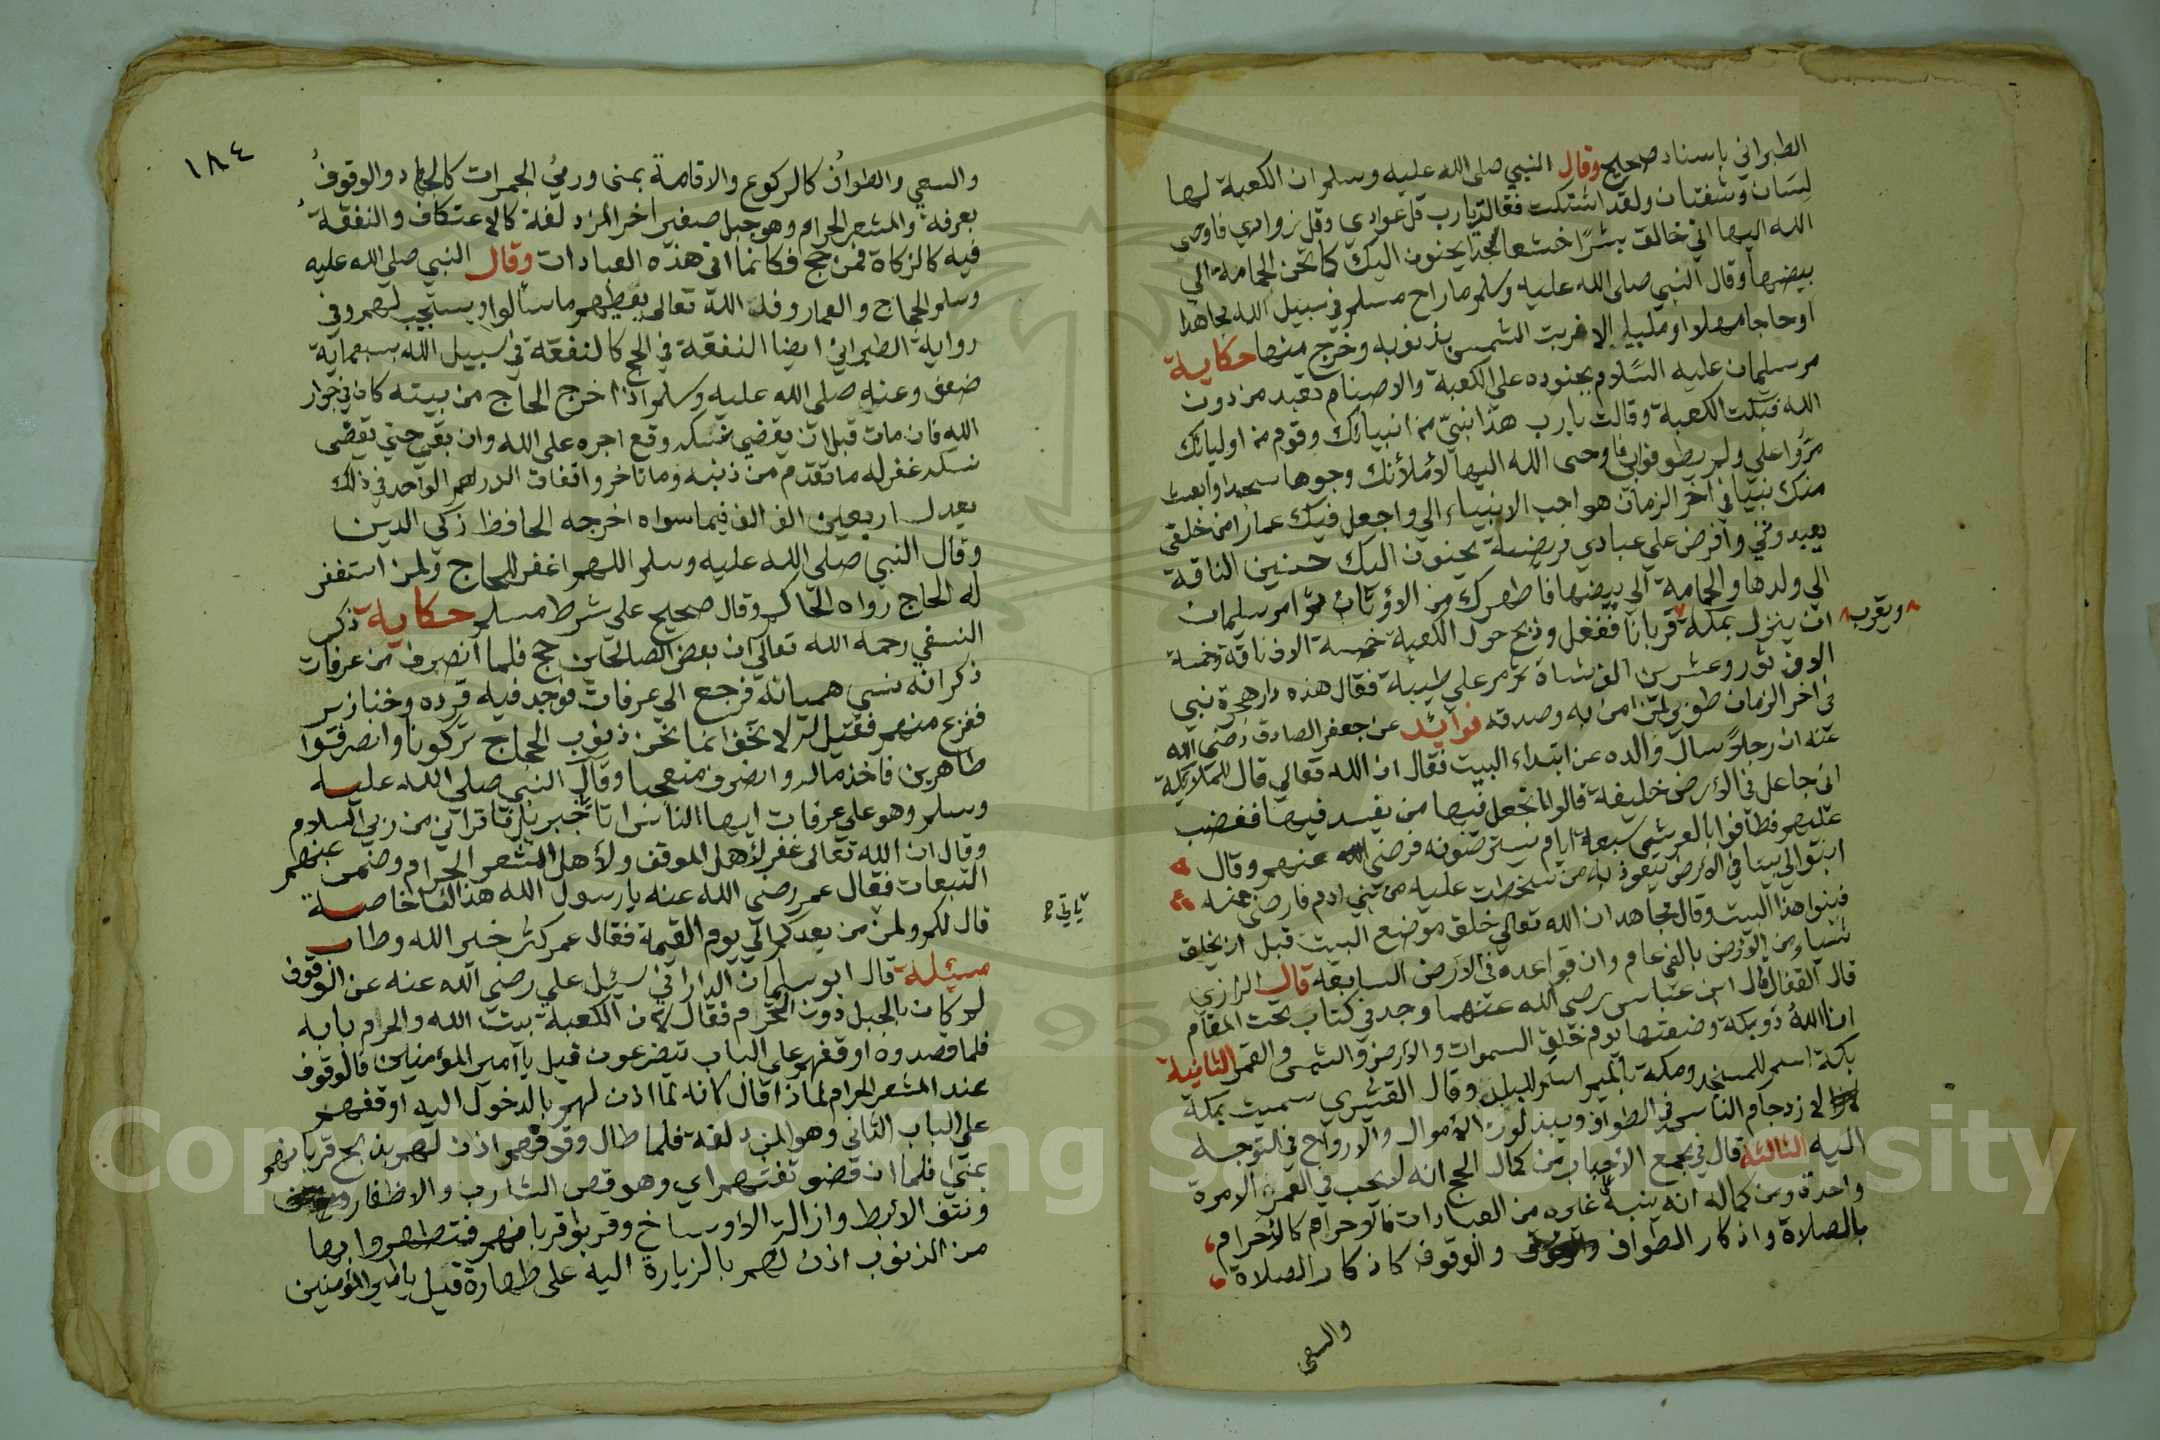 الطبراني باسناد صحيح وقال النبي صلى الله عليه وسلم ان الكعبة لها
لسان وشفتان ولقد اشتكت فقالت يارب قل عوادي وقل زواري فاوحى
الله اليها اني خالق بشرا خشعا سجدا يحنون اليك كما تحن الحمامة الي
بيضها وقال النبي صلى الله عليه وسلم ما راح مسلم في سبيل الله مجاهدا
او حاجا مهلا او ملبيا الا غربت الشمس بذنوبه وخرج منها حكاية
مر سليمان عليه السلام بجنوده على الكعبة والاصنام تعبد من دون
الله فبكت الكعبة وقالت يا رب هذا نبي من انبيائك وقوم من اوليائك
مروا علي ولم يطوفوا بي فاوحى الله اليها لاملأنك وجوها سجدا وابعث
منك نبيا في آخر الزمان هو احب الانبياء الي واجعل فيك عمارا من خلقي
يعبدونني وافرض علي عبادي فريضة يحنون اليك حنين الناقة
الي ولدها والحمامة الي بيضها فاطهرك من الاوثان ثم امر سليمان
ان ينزل بمكة قربانا ففعل وذبح حول الكعبة خمسة الاف ناقة وخمسة
ويقرب
الاف ثور وعشرين الف شاة ثم مر علي طيبة فقال هذه دار هجرة نبي
في اخر الزمان طوبي لمن امن به وصدقه فوائد عن جعفر الصادق رضي الله
عنه ان رجلا سال والده عن ابتداء البيت فقال ان الله تعالي قال للملائكة
اني جاعل في الارض خليفة قالوا اتجعل فيها من يفسد فيها فغضب
عليهم فطافوا بالعرش سبعة ايام يسترضونه فرضي الله عنهم وقال
ابنوا لي بيتا في الارض يتعوذ به من سخطت عليه من بني ادم فارضى عنه
فبنوا هذا البيت وقال مجاهد ان الله تعالي خلق موضع البيت قبل ان يخلق
شياء من الارض بالفي عام وان قواعده في الارض السابعة قال الرازي
قال القفال قال ابن عباس رضي الله عنهما وجد في كتاب تحت المقام
انا الله ذو بكة وضعتها يوم خلق السموات والارض والشمس والقمر الثانية
بكة اسم للمسجد ومكة بالميم اسم للبلد وقال القشيري سميت بكة
لازدحام الناس في الطواف ويبذلون الاموال والارواح في التوجه
اليه الثالثة قال في مجمع الاحباب من كمال الحج انه لا يجب في العمر الا مرة
واحدة ومن كماله انه ينبه غايره من العبادات فالاحرام كالاحرام
بالصلاة واذكار الطواف والوقوف كاذكار الصلاة
والسعي
١٨٤
والسعي والطواف كالركوع والاقامة بمنى ورمي الجمرات كالجهاد والوقوف
بعرفة والمشعر الحرام وهو جبل صغير اخر المزدلفة كالاعتكاف والنفقة
فيه كالزكاة فمن حج فكانما اتى هذه العبادات وقال النبي صلى الله عليه
وسلم الحجاج والعمار وفد الله تعالى يعطيهم ما سالوا ويستجيب لهم وفي
رواية الطبراني ايضا النفقة في الحج كالنفقة في سبيل الله بسبعماية
ضعف وعنه صلى الله عليه وسلم اذا خرج الحاج من بيته كان في جوار
الله فان مات قبل ان يقضي نسكه وقع اجره على الله وان بقي حتي يقضى
نسكه غفر له ما تقدم من ذنبه وما تاخر وانفاق الدرهم الواحد في ذلك
يعدل اربعين الف الف فيما سواه اخرجه الحافظ زكي الدين
وقال النبي صلى الله عليه وسلم اللهم اغفر للحاج ولمن استغفر
له الحاج رواه الحاكم وقال صحيح علي شرط مسلم حكاية ذكر
النسفي رحمه الله تعالي ان بعض الصالحين حج فلما انصرف من عرفات
ذكر انه نسي هميانه فرجع الي عرفات فوجد فيه قرده وخنازير
ففزع منهم فقيل له لا تخف انما نحن ذنوب الحجاج تركونا وانصرفوا
طاهرين فاخذ ماله وانصرف متعجبا وقال النبي صلى الله عليه
وسلم وهو علي عرفات ايها الناس اتاني جبريل فاقراني من ربي السلام
وقال ان الله تعالى غفر لاهل الموقف ولاهل المشعر الحرام وضمن عنهم
التبعات فقال عمر رضي الله عنه يا رسول الله هذا لنا خاصة
قال لكم ولمن من بعدكم الي يوم القيمة فقال عمر كثر خير الله وطاب
مسئلة قال ابو سليمان الداراني سئل علي رضي الله عنه عن الوقوف
لم كان بالجبل دون الحرم فقال لان الكعبة بيت الله والحرم بابه
فلما قصدوه اوقفهم على الباب يتضرعون قيل يا امير المؤمنين فالوقوف
عند المشعر الحرام لماذا قال كانه لما اذن لهم بالدخول اليه اوقفهم
علي الباب الثاني وهو المزدلفة فلما طال وقوفهم اذن لهم بذبح قربانهم
بمنى فلما ان قضوا تفثهم اي وهو قص الشارب والاظفار
ونتف الابط وازالة الاوساخ وقربوا قربانهم فتطهروا بها
من الذنوب اذن لهم بالزيارة اليه على طهارة قيل يا امير المؤمنين